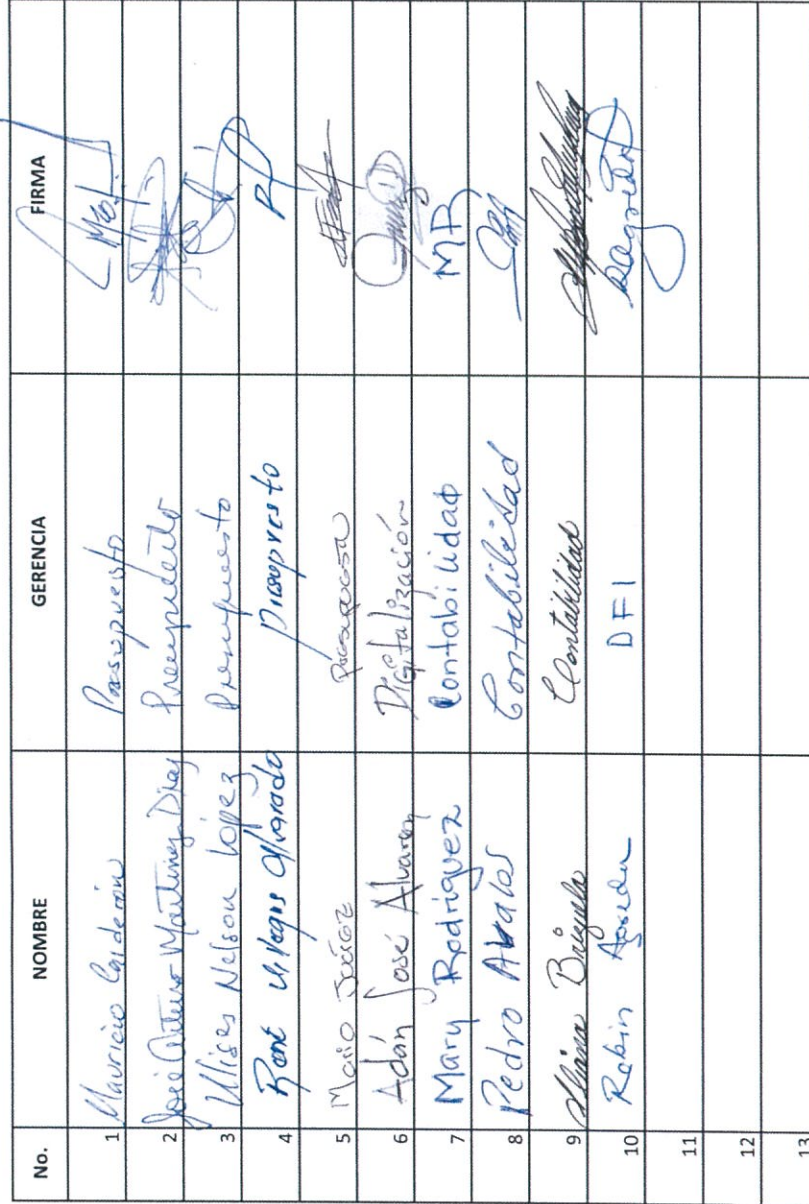 No. NOMBRE GERENCIA FIRMA
1 Mauricio Calderón Presupuesto
2 José Arturo Martínez Díaz Presupuesto
3 Ulises Nelson López Presupuesto
4 René Alvarado Presupuesto
5 Mario Presupuesto
6 Adán José Alvarez Digitalización
7 Mary Rodríguez Contabilidad MR
8 Pedro Avalos Contabilidad
9 Contabilidad
10 Robin DFI
11
12
13